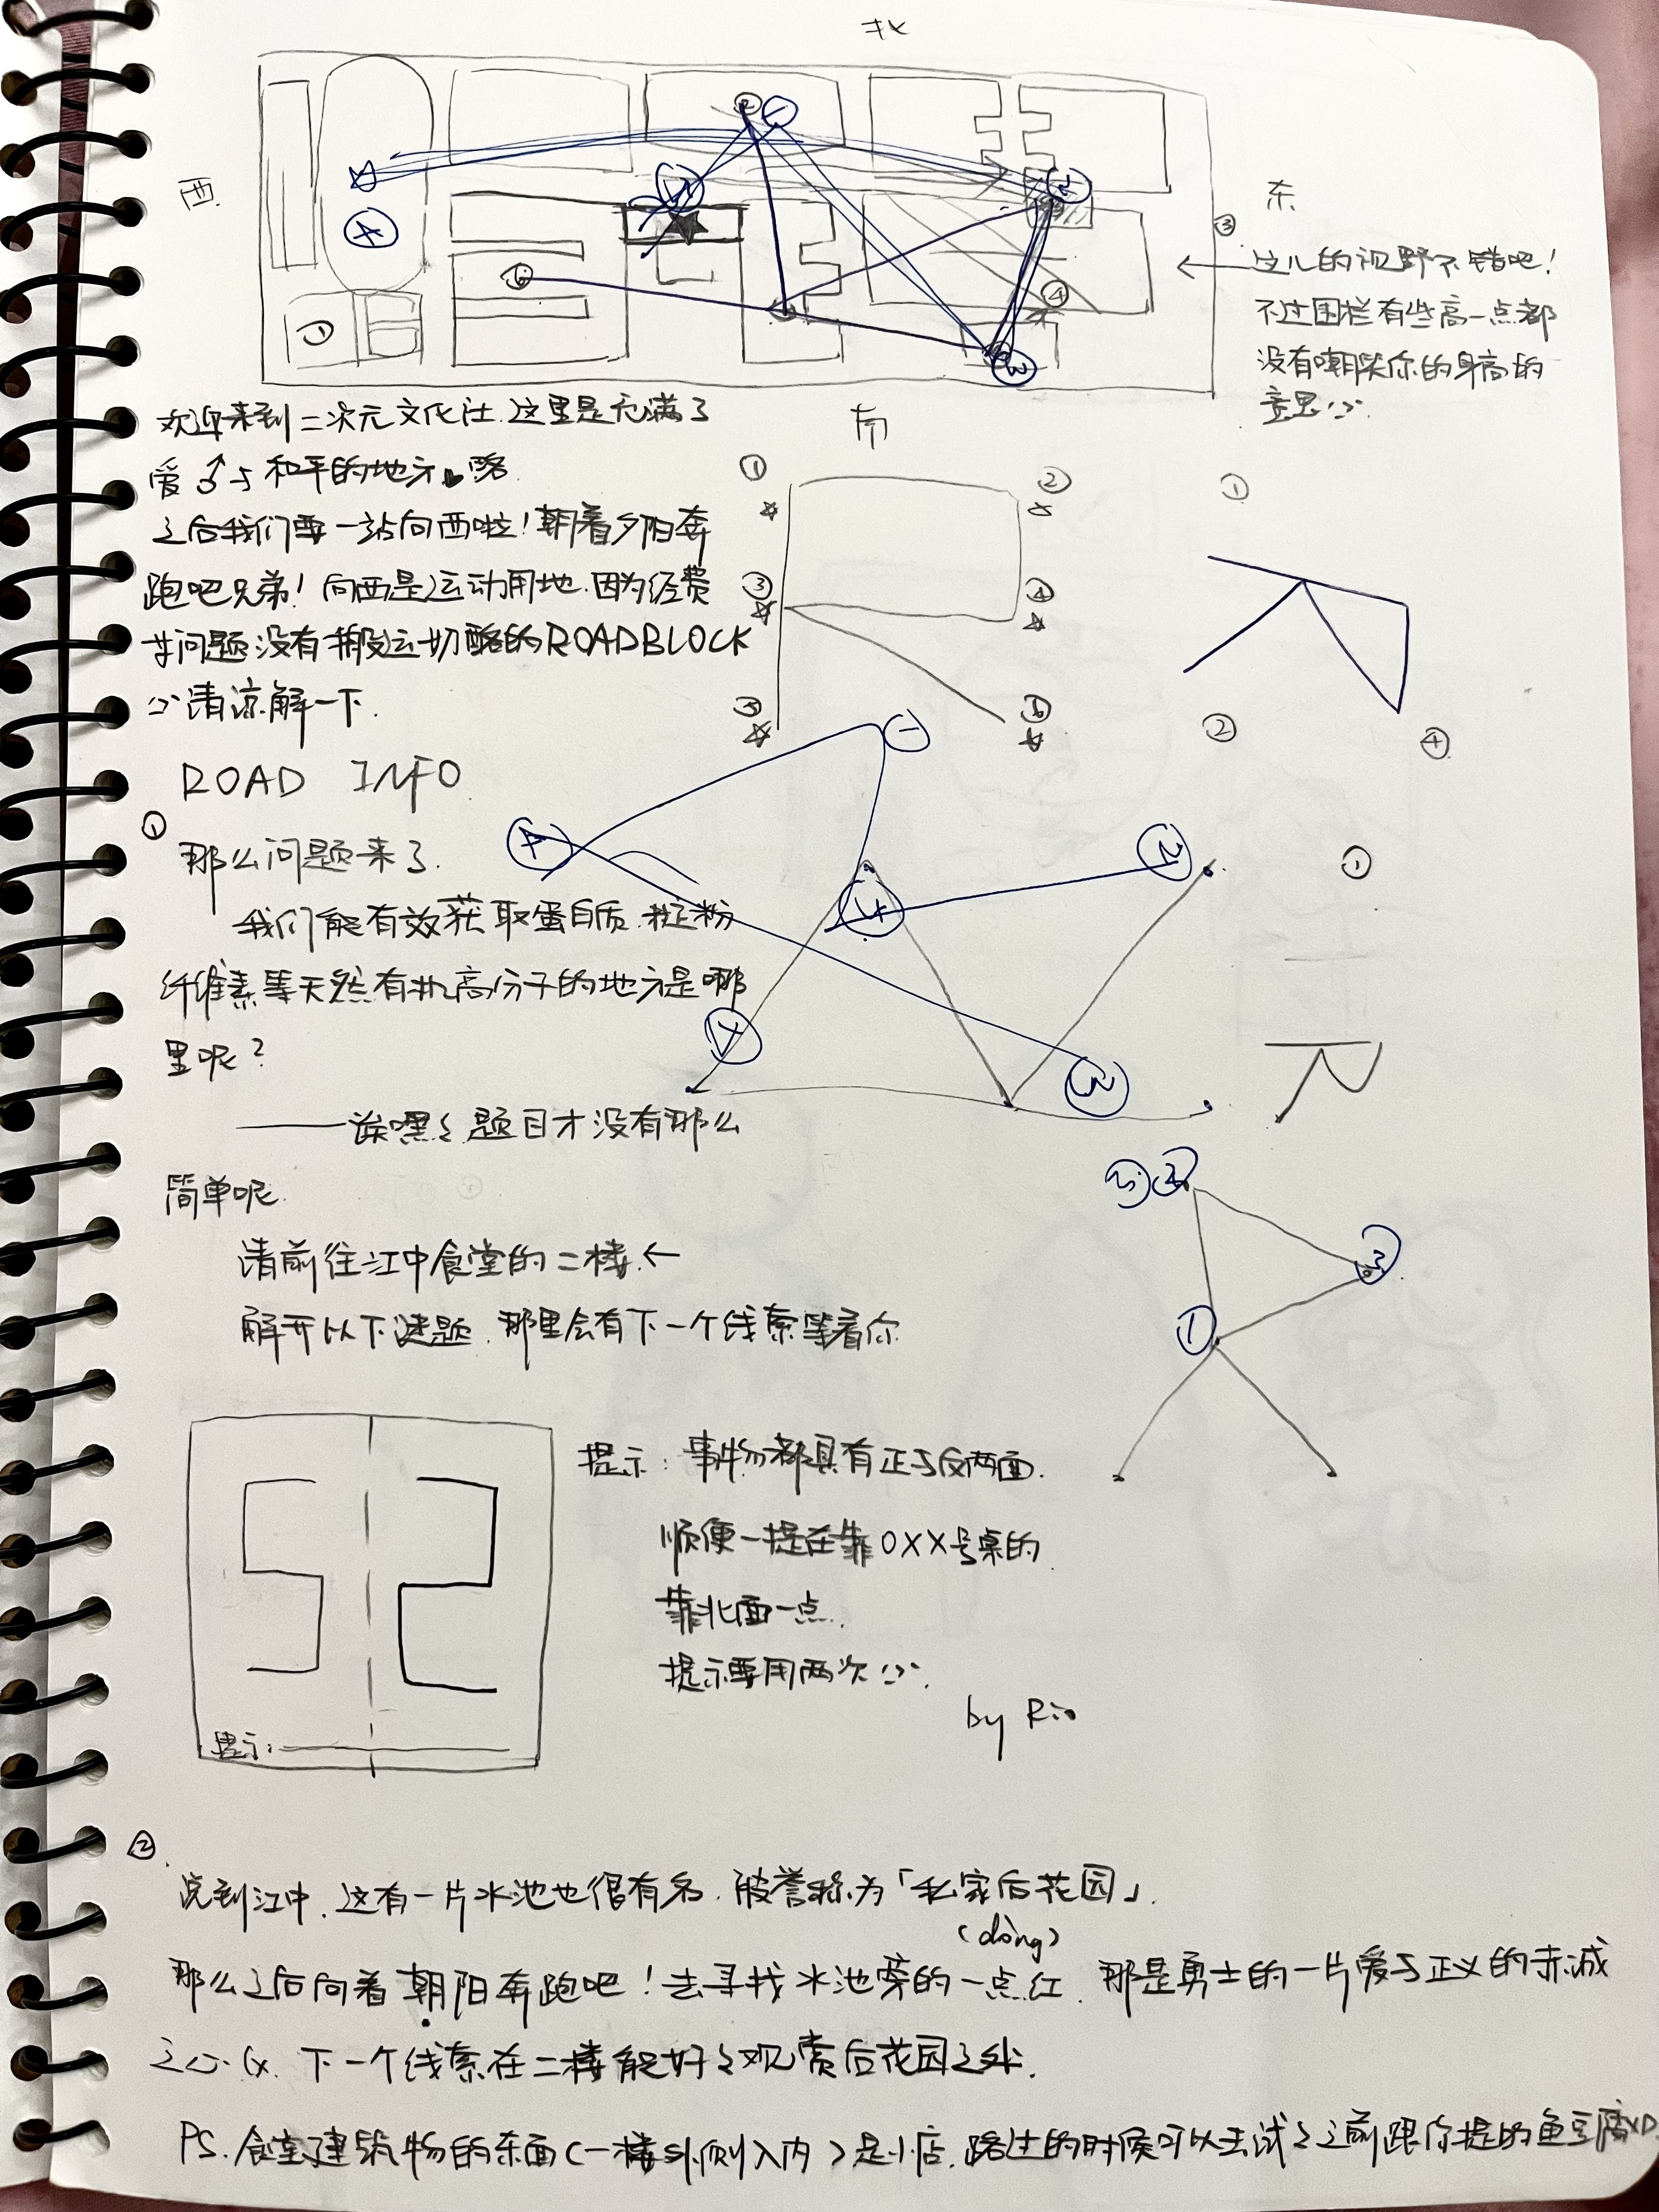 北
西
东
③
这儿的视野不错吧!
不过围栏有些高一点都
没有嘲笑你的身高的
意思
南
① ④ ⑥
欢迎来到二次元文化社.这里是充满了
爱♂与和平的地方
之后我们要一站向西啦!朝着夕阳奔
跑吧兄弟!向西是运动用地.因为经费
问题没有搬运切酪的ROADBLOCK
请谅解一下.
① ②
③ ④
③ ⑤
①
② ④
ROAD INFO
①
那么问题来了.
我们能有效获取蛋白质.淀粉
纤维素等天然有机高分子的地方是哪
里呢?
——诶嘿々题目才没有那么
简单呢
请前往江中食堂的二楼.←
解开以下谜题.那里会有下一个线索等着你
A
①
提示:
提示:事物都具有正与反两面.
顺便一提在靠0XX号桌的
靠北面一点.
提示要用两次
by Rio
②
说到江中.这有一片水池也很有名.被誉称为「私家后花园」.
(dòng)
那么之后向着朝阳奔跑吧!去寻找水池旁的一点红.那是勇士的一片爱与正义的赤诚
之心.(x.下一个线索在二楼能好々观赏后花园之处.
PS.食堂建筑物的东面(一楼外侧入内)是小店.路过的时候可以去试々之前跟你提的鱼豆腐XD